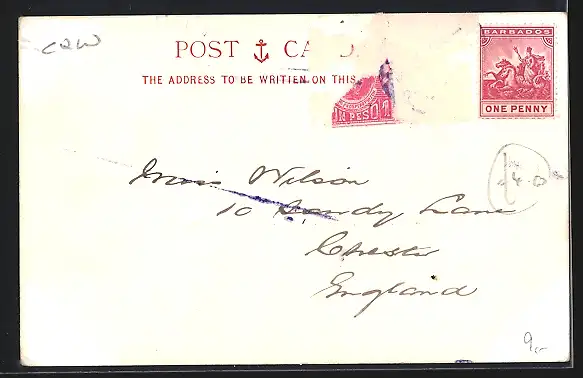 CQW
POST CA D
THE ADDRESS TO BE WRITTEN ON THIS
BARBADOS
ONE PENNY
PESO
Wilson
10 Sandy Lane
Chester
England
9,-